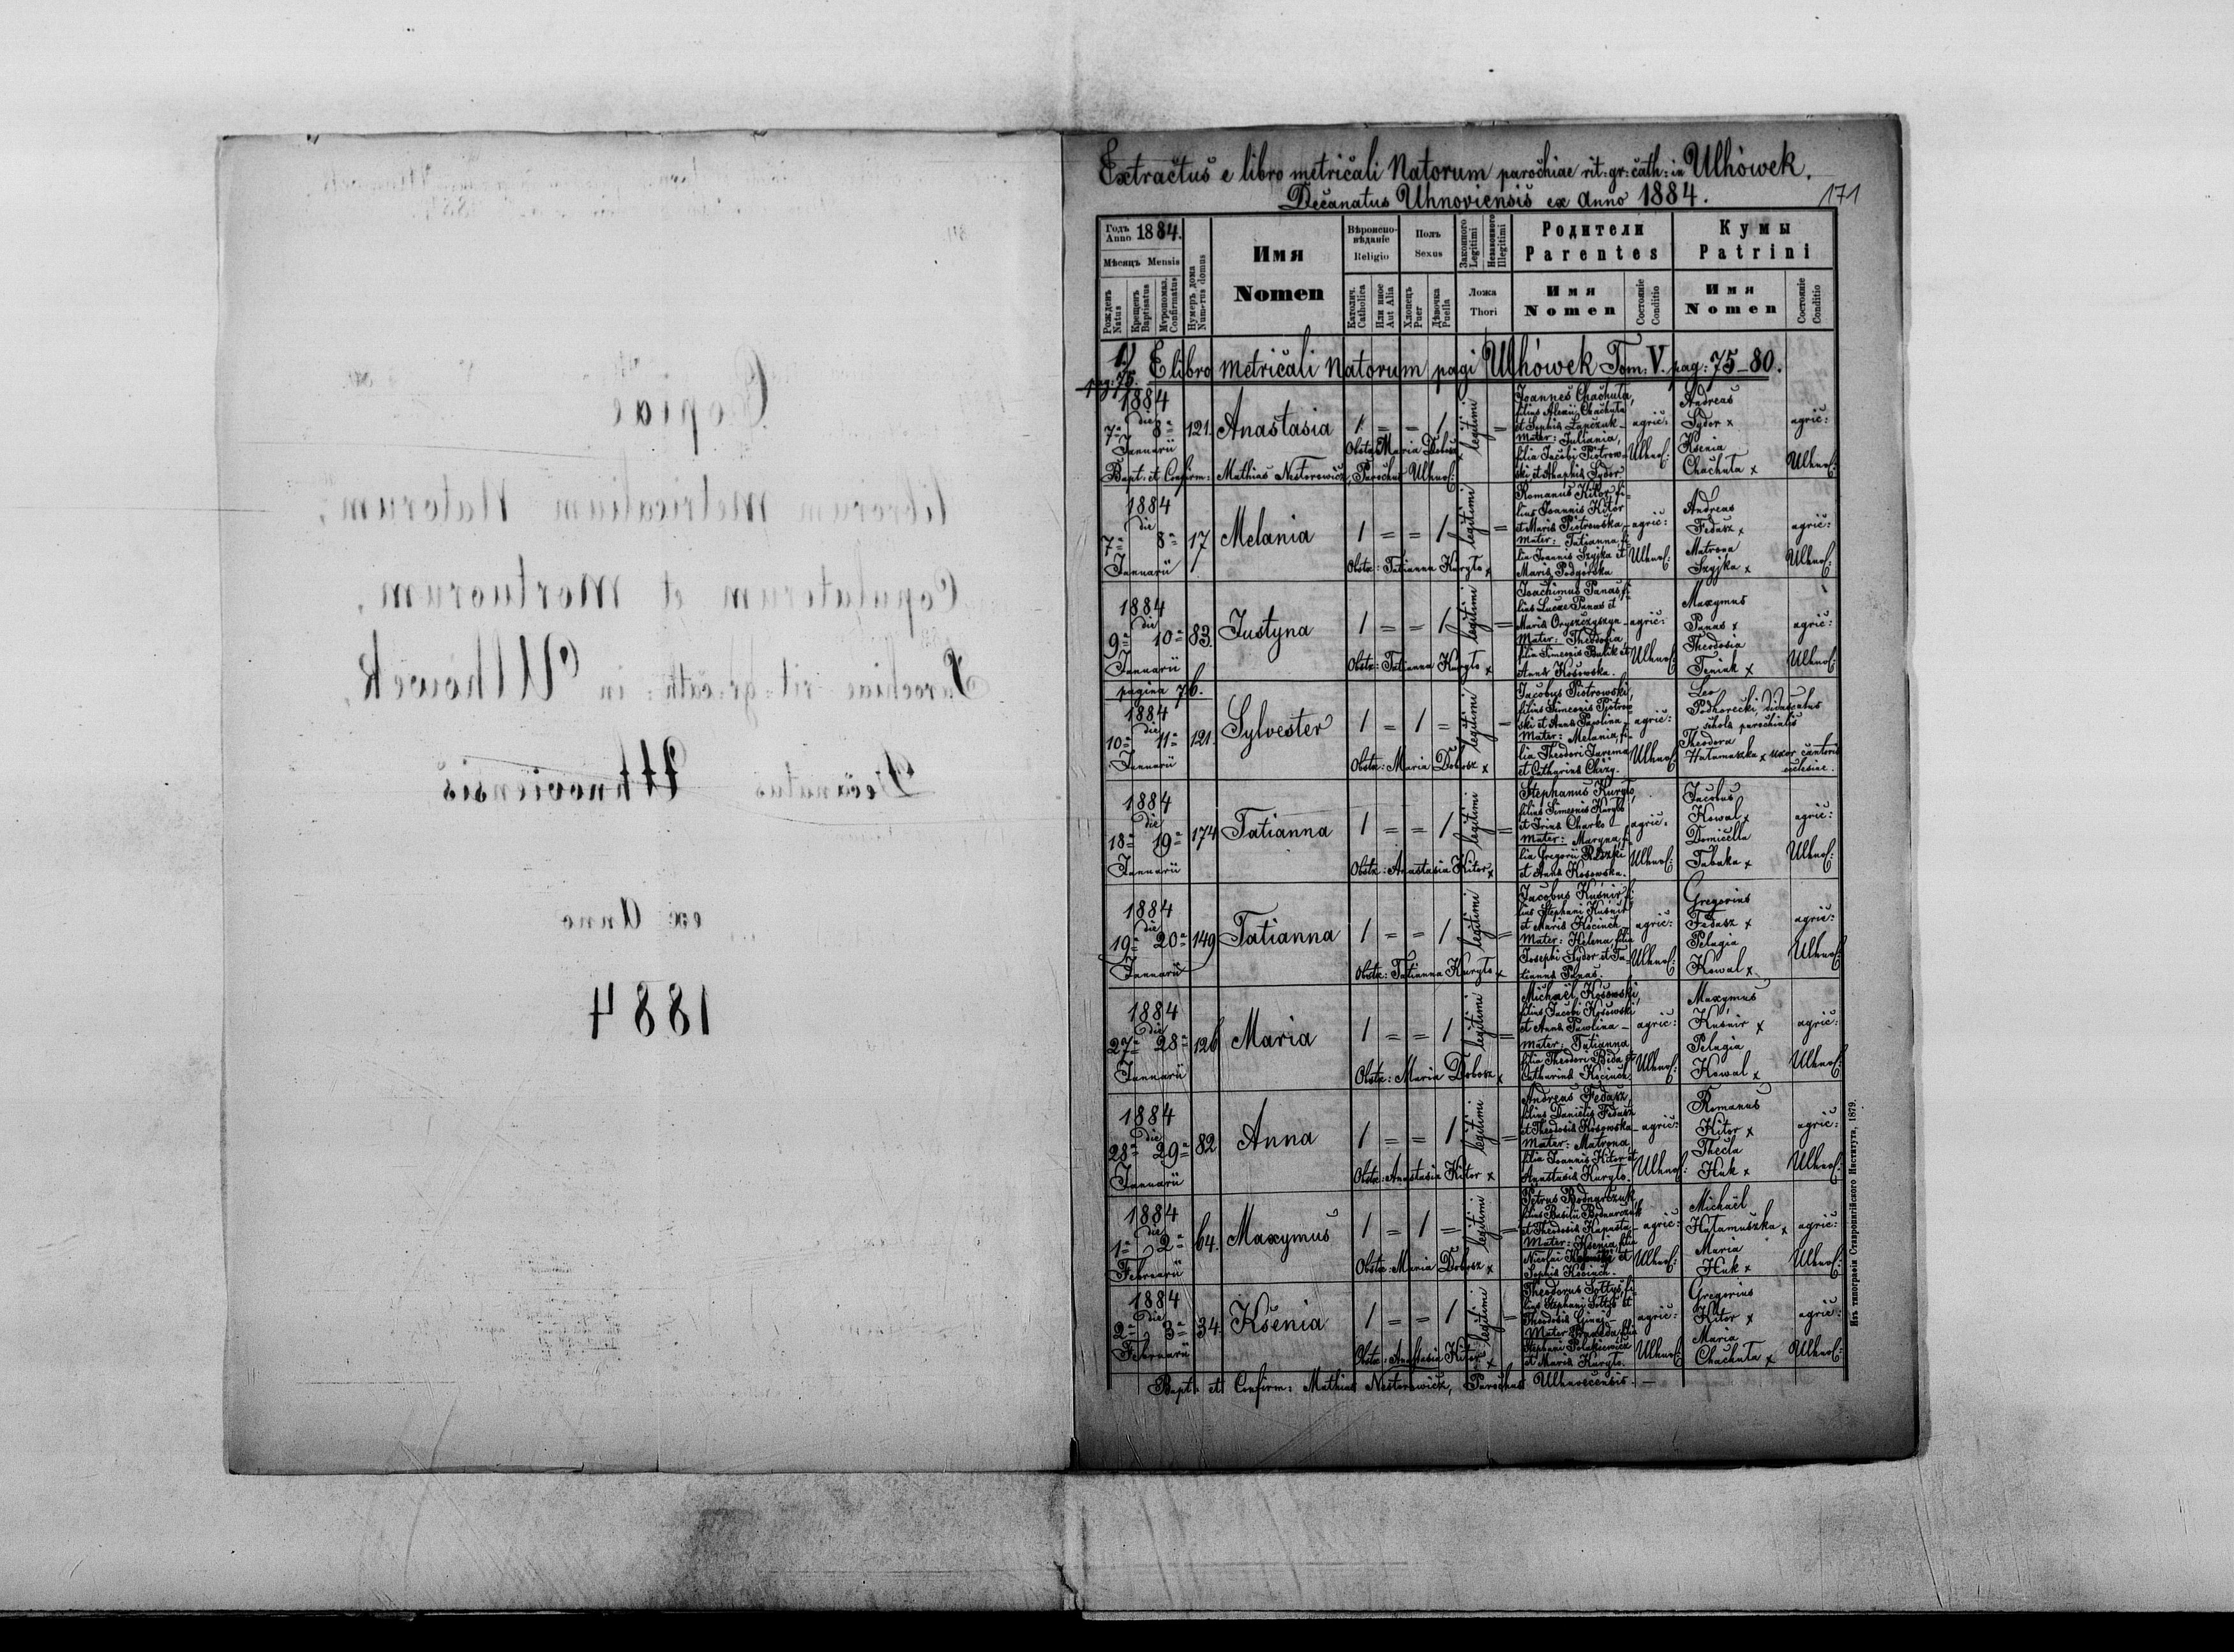 Copiae
librorum metricalium Natorum,
Copulatorum et Mortuorum,
Parochiae rit: gr: cath: in Ulhówek,
Decanatus Uhnoviensis
ex Anno
1884
Extractus e libro metricali Natorum parochiae rit: gr: cath: in Ulhówek.
Decanatus Uhnoviensis ex Anno 1884.
171
Годъ Anno 1884.
Мѣсяцъ Mensis
Рожденъ Natus
Крещенъ Baptisatus
Мѵропомаз. Confirmatus
Нумеръ дома Num-rus domus
Имя
Nomen
Вѣроиспо-
вѣданіе
Religio
Католич. Catholica
Или иное Aut Alia
Полъ
Sexus
Хлопецъ Puer
Дѣвочка Puella
Законного Legitimi
Незаконного Illegitimi
Ложа
Thori
Родители
Parentes
Имя
Nomen
Состояніе Conditio
Кумы
Patrini
Имя
Nomen
Состояніе Conditio
1/ E libro metricali Natorum pagi Ulhówek Tom: V. pag: 75-80.
pag: 75.
1884
die
7ª 8ª
Januarii
121.
Anastasia
1 = = 1 legitimi =
Obstx: Maria Dobosz x
Joannes Chachuła,
filius Alexii Chachuła
et Sophia Łapczuk -
Mater: Juliania,
filia Jacobi Piotrow-
ski et Ahaphia Sydor
agric:
Ulhnos:
Andreas
Sydor x
Ksenia
Chachuła x
agric:
Ulhnos:
Bapt: et Confirm: Mathias Nestorowicz, Parochus Ulhnos:
1884
die
7ª 8ª
Januarii
17
Melania
1 = = 1 legitimi =
Obstx: Tatianna Kuryło x
Romanus Kitor fi-
lius Joannis Kitor
et Maria Piotrowska
Mater: Tatianna, fi-
lia Joannis Szyjka et
Maria Podgórska
agric:
Ulhnos:
Andreas
Fedasz x
Matrona
Szyjka x
agric:
Ulhnos:
1884
die
9ª 10ª
Januarii
83.
Justyna
1 = = 1 legitimi =
Obstx: Tatianna Kuryło x
Joachimus Panas fi-
lius Lucae Panas et
Maria Oryszczyszyn -
Mater: Theodosia,
filia Simeonis Bulik et
Anna Kosowska.
agric:
Ulhnos:
Maxymus
Panas x
Theodosia
Feniuk x
agric:
Ulhnos:
pagina 76.
1884
die
10ª 11ª
Januarii
121.
Sylvester
1 = 1 = legitimi =
Obstx: Maria Dobosz x
Jacobus Piotrowski,
filius Simeonis Piotrow-
ski et Anna Pawlina -
Mater: Melania, fi-
lia Theodori Jarema
et Catharina Chizy.
agric:
Ulhnos:
Leo
Podhorecki,
schola parochialis
Theodora
Hałamuszka x uxor cantoris
ecclesiae.
1884
die
18ª 19ª
Januarii
174
Tatianna
1 = = 1 legitimi =
Obstx: Anastasia Kitor x
Stephanus Kuryło,
filius Simeonis Kuryło
et Irina Charko -
Mater: Maryna, fi-
lia Gregorii
et Anna Kosowska.
agric:
Ulhnos:
Jacobus
Kowal x
Domicella
Tabaka x
agric:
Ulhnos:
1884
die
19ª 20ª
Januarii
149
Tatianna
1 = = 1 legitimi =
Obstx: Tatianna Kuryło x
Jacobus Kuśnir fi-
lius Stephani Kuśnir
et Maria Kociuch
Mater: Helena, filia
Josephi Sydor et Ta-
tianna Panas.
agric:
Ulhnos:
Gregorius
Fedasz x
Pelagia
Kowal x
agric:
Ulhnos:
1884
die
27ª 28ª
Januarii
126
Maria
1 = = 1 legitimi =
Obstx: Maria Dobosz x
Michaël Kosowski,
filius Jacobi Kosowski
et Anna Pawlina -
Mater: Tatianna
filia Theodori Bida et
Catharina Kociuch.
agric:
Ulhnos:
Maxymus
Kuśnir x
Pelagia
Kowal x
agric:
Ulhnos:
1884
die
28ª 29ª
Januarii
82
Anna
1 = = 1 legitimi =
Obstx: Anastasia Kitor x
Andreas Fedasz,
filius Danielis Fedasz
et Theodosia Kosowska -
Mater: Matrona,
filia Joannis Kitor et
Anastasia Kuryło.
agric:
Ulhnos:
Romanus
Kitor x
Thecla
Huk x
agric:
Ulhnos:
1884
die
1ª 2ª
Februarii
64.
Maxymus
1 = 1 = legitimi =
Obstx: Maria Dobosz x
Petrus Bodnarczuk
filius Basilii Bodnarczuk
et Theodosia Kapusta -
Mater: Ksenia, filia
Nicolai et
Sophia Kociuch.
agric:
Ulhnos:
Michaël
Hałamuszka x
Maria
Huk x
agric:
Ulhnos:
1884
die
2ª 3ª
Februarii
34.
Ksenia
1 = = 1 legitimi =
Obstx: Anastasia Kitor x
Theodorus Sołtys, fi-
lius Stephani Sołtys et
Theodosia
Mater: filia
Stephani
et Maria Kuryło.
agric:
Ulhnos:
Gregorius
Kitor x
Maria
Chachuła x
agric:
Ulhnos:
Bapt: et Confirm: Mathias Nestorowicz, Parochus Ulhnoscensis -
Изъ типографіи Ставропигійского Института, 1879.